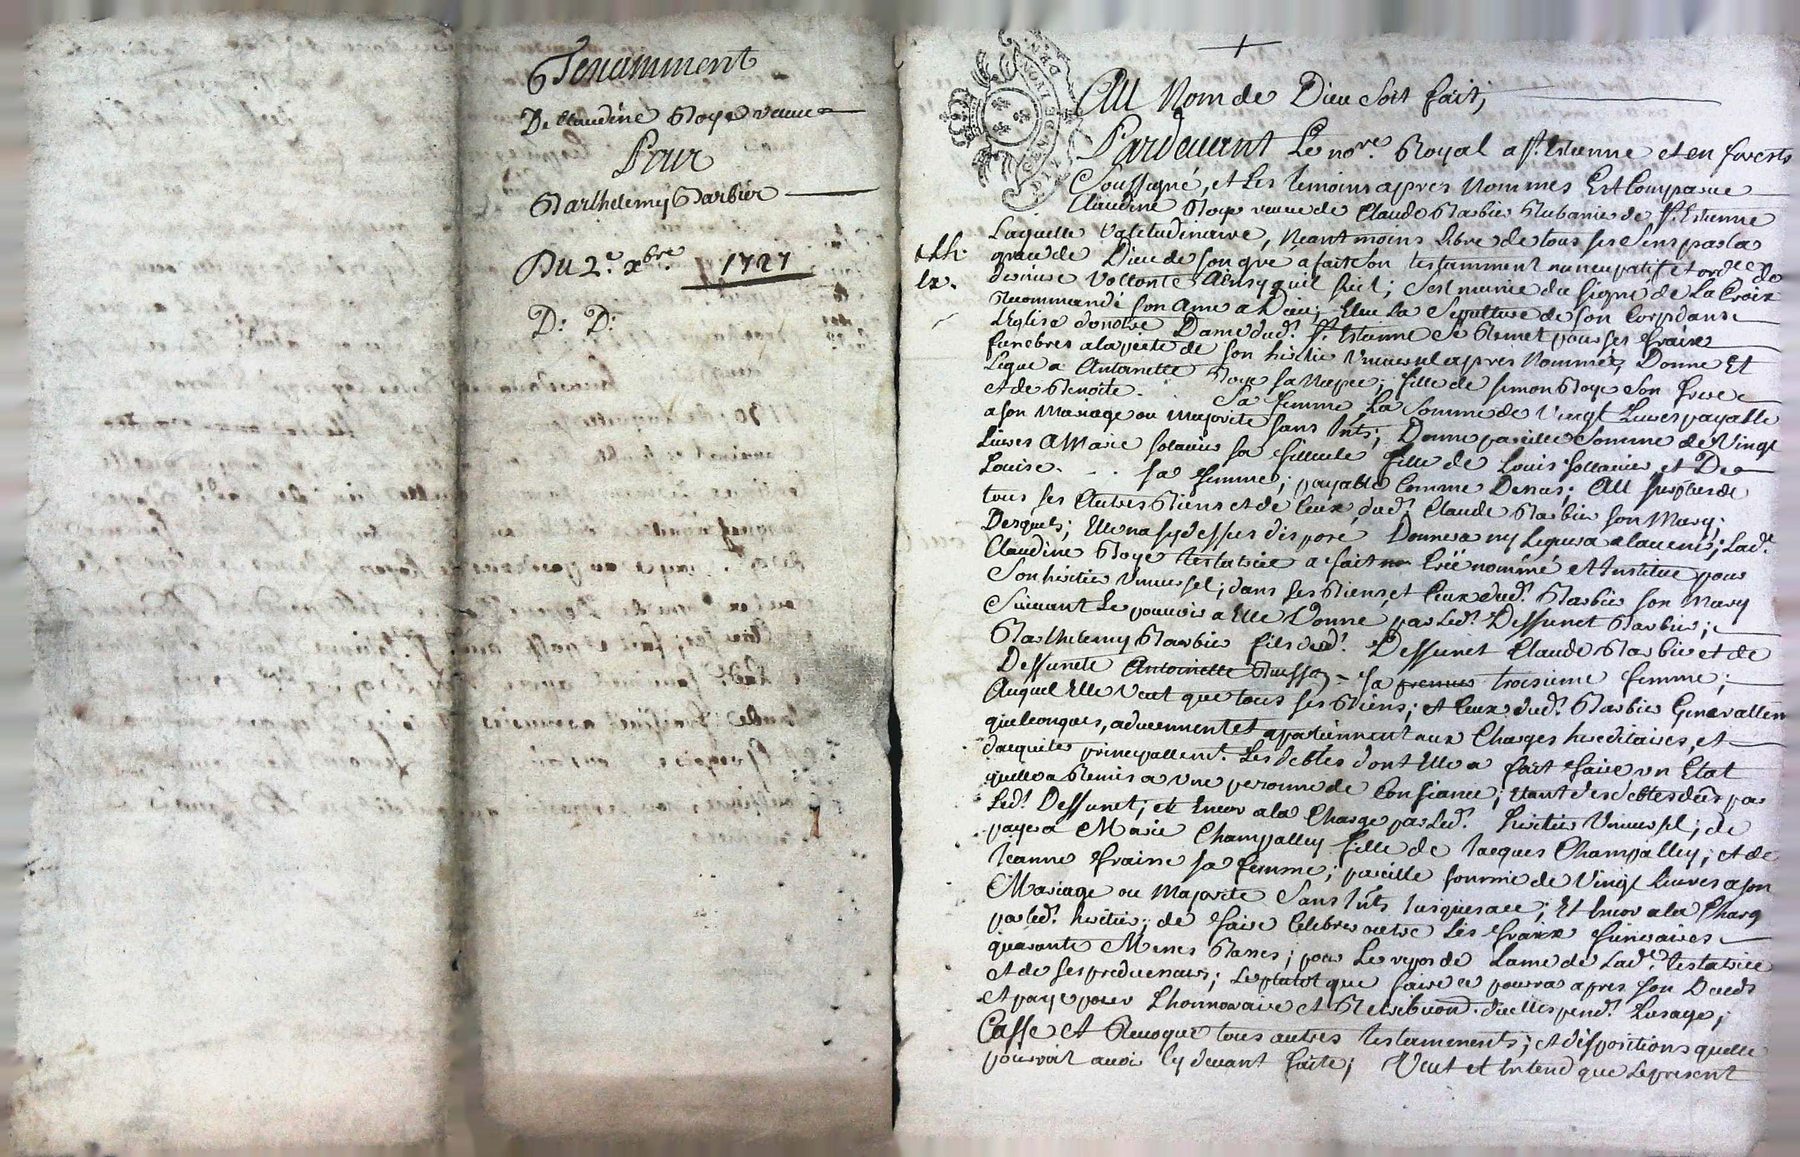 Testamment
De Claudine Roye veuve
Pour
Barthelemy Barbier
Du 2.e xbre 1727
D: D:
+
Au Nom de Dieu soit fait;
Pardevant Le nore. Royal a st. Estienne et en forests
Soussigné, et Les temoins apres Nommes Est Comparue
Claudine Roye veuve de Claude Barbier Rubanier de st. Estienne
Laquelle valitudinaire, Neantmoins libre de tous ses sens par la
grace de Dieu de son gre a fait son testamment nuncupatif et ordce. de
derniere Vollonté Ainsy quil suit; s'est munie du signe de La Croix
Recommandé son Ame a Dieu; Elleu La Sepulture de son Corps dans
L'Eglise de notre Dame dud. st. Estienne se Remet pour ses fraix
funebres a la pieté de son heritier Universel apres Nommé; Donne Et
Legue a Antoinette Roye sa Niepce; fille de simon Roye son frere
et de Benoite . sa femme La Somme de Vingt Livres payable
a son Mariage ou Majorité sans Ints; Donne pareille Somme de Vingt
Livres A Marie solanier sa filleule fille de Louis sollanier et De
Louise. . . sa femme; payable Comme Dessus; Au surplus de
tous ses Autres Biens et de Ceux dud. Claude Barbier son Mary;
Desquels; Elle na sydessus disposé Donnera ny Leguera a lavenir; Lad.
Claudine Roye testatrice a fait Creé nommé et Institue pour
Son heritier Universel; dans ses Biens et Ceux dud. Barbier son Mary
Suivant Le pouvoir a Elle Donné par Led. Deffunct Barbier;
Barthelemy Barbier fils dud. Deffunct Claude Barbier et de
Deffuncte Antoinette sa femme troisieme femme;
Auquel Elle Veut que tous ses Biens; et Ceux dud. Barbier Generallem
quelconques, adviennent et apartiennent aux Charges hereditaires, et
dacquiter principallemt. Les debtes dont Elle a fait faire un Etat
quelle a Remis a une personne de Confiance; Etant des debtes dües par
Led. Deffunct; et Encor a la Charge par Led. heritier Universel; de
payer a Marie Champalley fille de Jacques Champalley; et de
Jeanne fraisse sa femme; pareille somme de Vingt Livres a son
Mariage ou Majorité Sans Ints Jusques a ce; Et Encor a la Charg
par led. heritier; de faire Celebrer outre Les fraix funeraires
quarante Messes Basses; pour Le repos de Lame de Lade. testatrice
et de ses predecesseurs; Le plutot que faire ce pourra apres son Decéds
et paye pour Lhonnoraire et Retribuon. dicelles pend. Lusage;
Casse et Revoque tous autres testamments; et dispositions quelle
pourroit avoir Cy devant faite; Veut et Entend que Le present